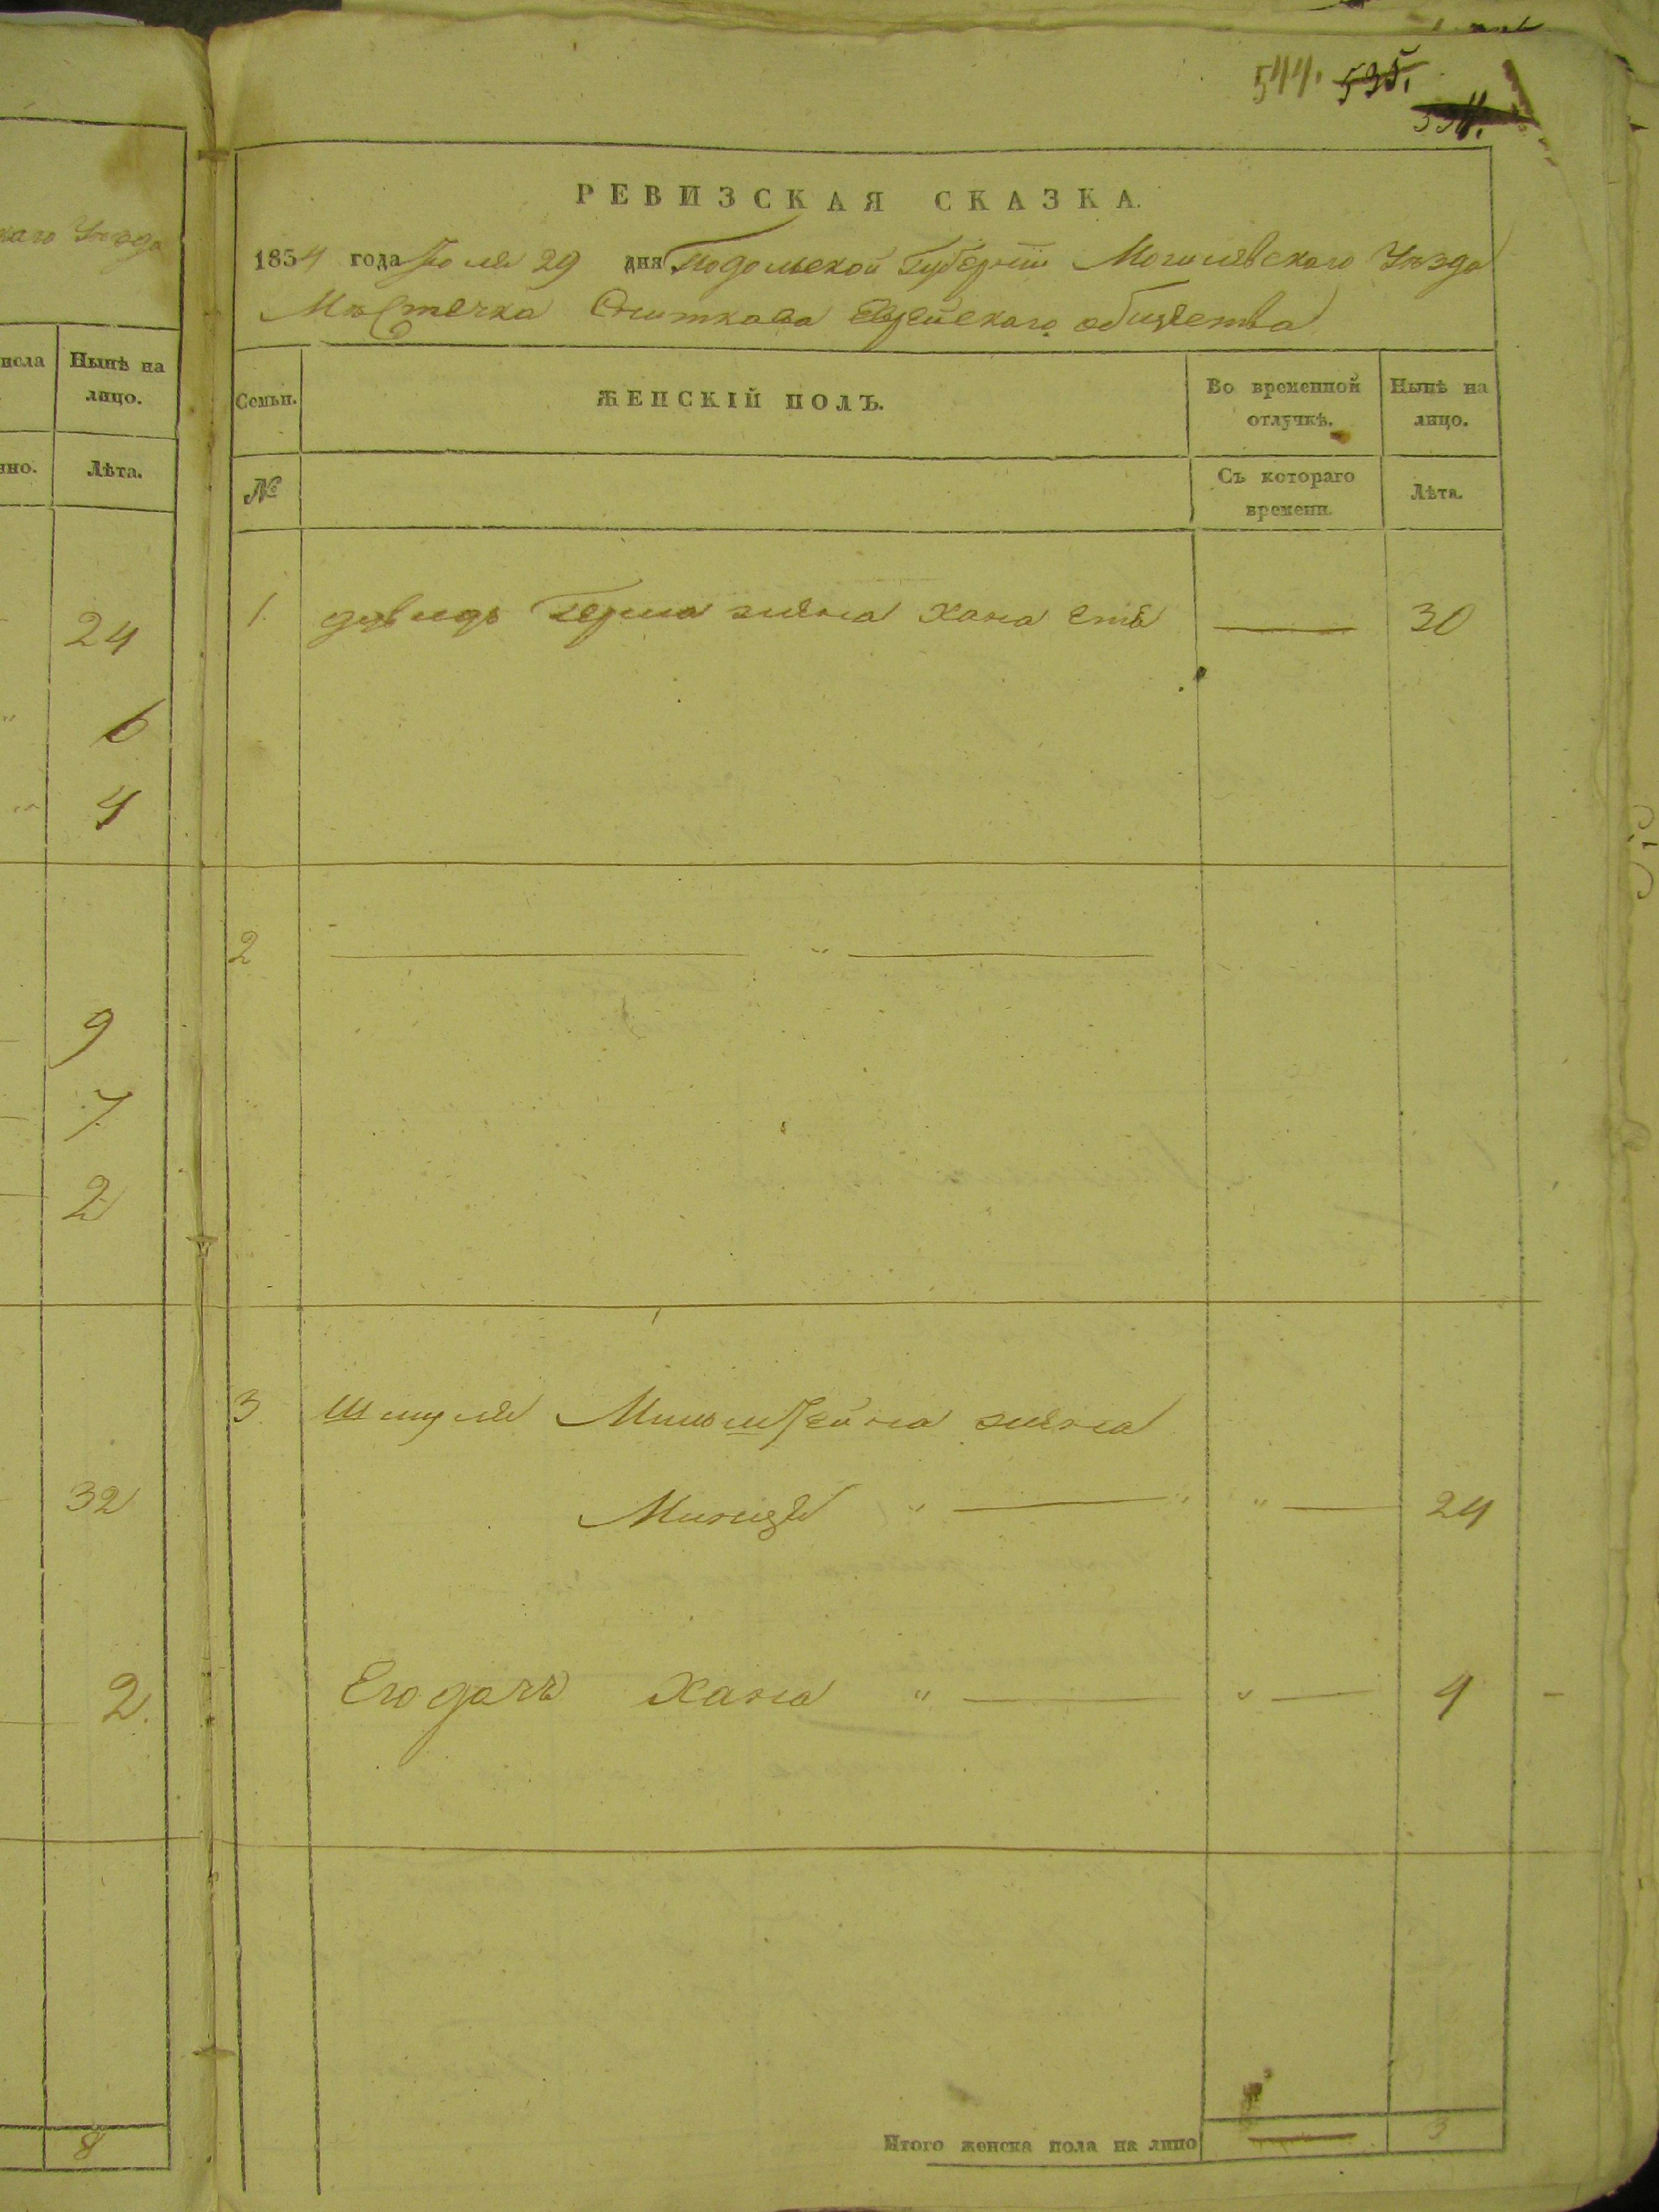 каго Уѣзда
Нынѣ на
лицо.
Лѣта.
24
6
4
9
7
2
32
2.
8
544. 535.
РЕВИЗСКАЯ СКАЗКА.
1854 года Іюля 29 дня Подольской Губерніи Могилевскаго Уѣзда
Мѣстечка Сниткова Еврейскаго общества
Семьи. ЖЕНСКІЙ ПОЛЪ. Во временной отлучкѣ. Нынѣ на лицо.
№ Съ котораго времени. Лѣта.
1. Герша жена Хана 30
2 "
3. Шмуля жена
" " " 24
Его дочь Хана " " 4
Итого женска пола на лицо 3